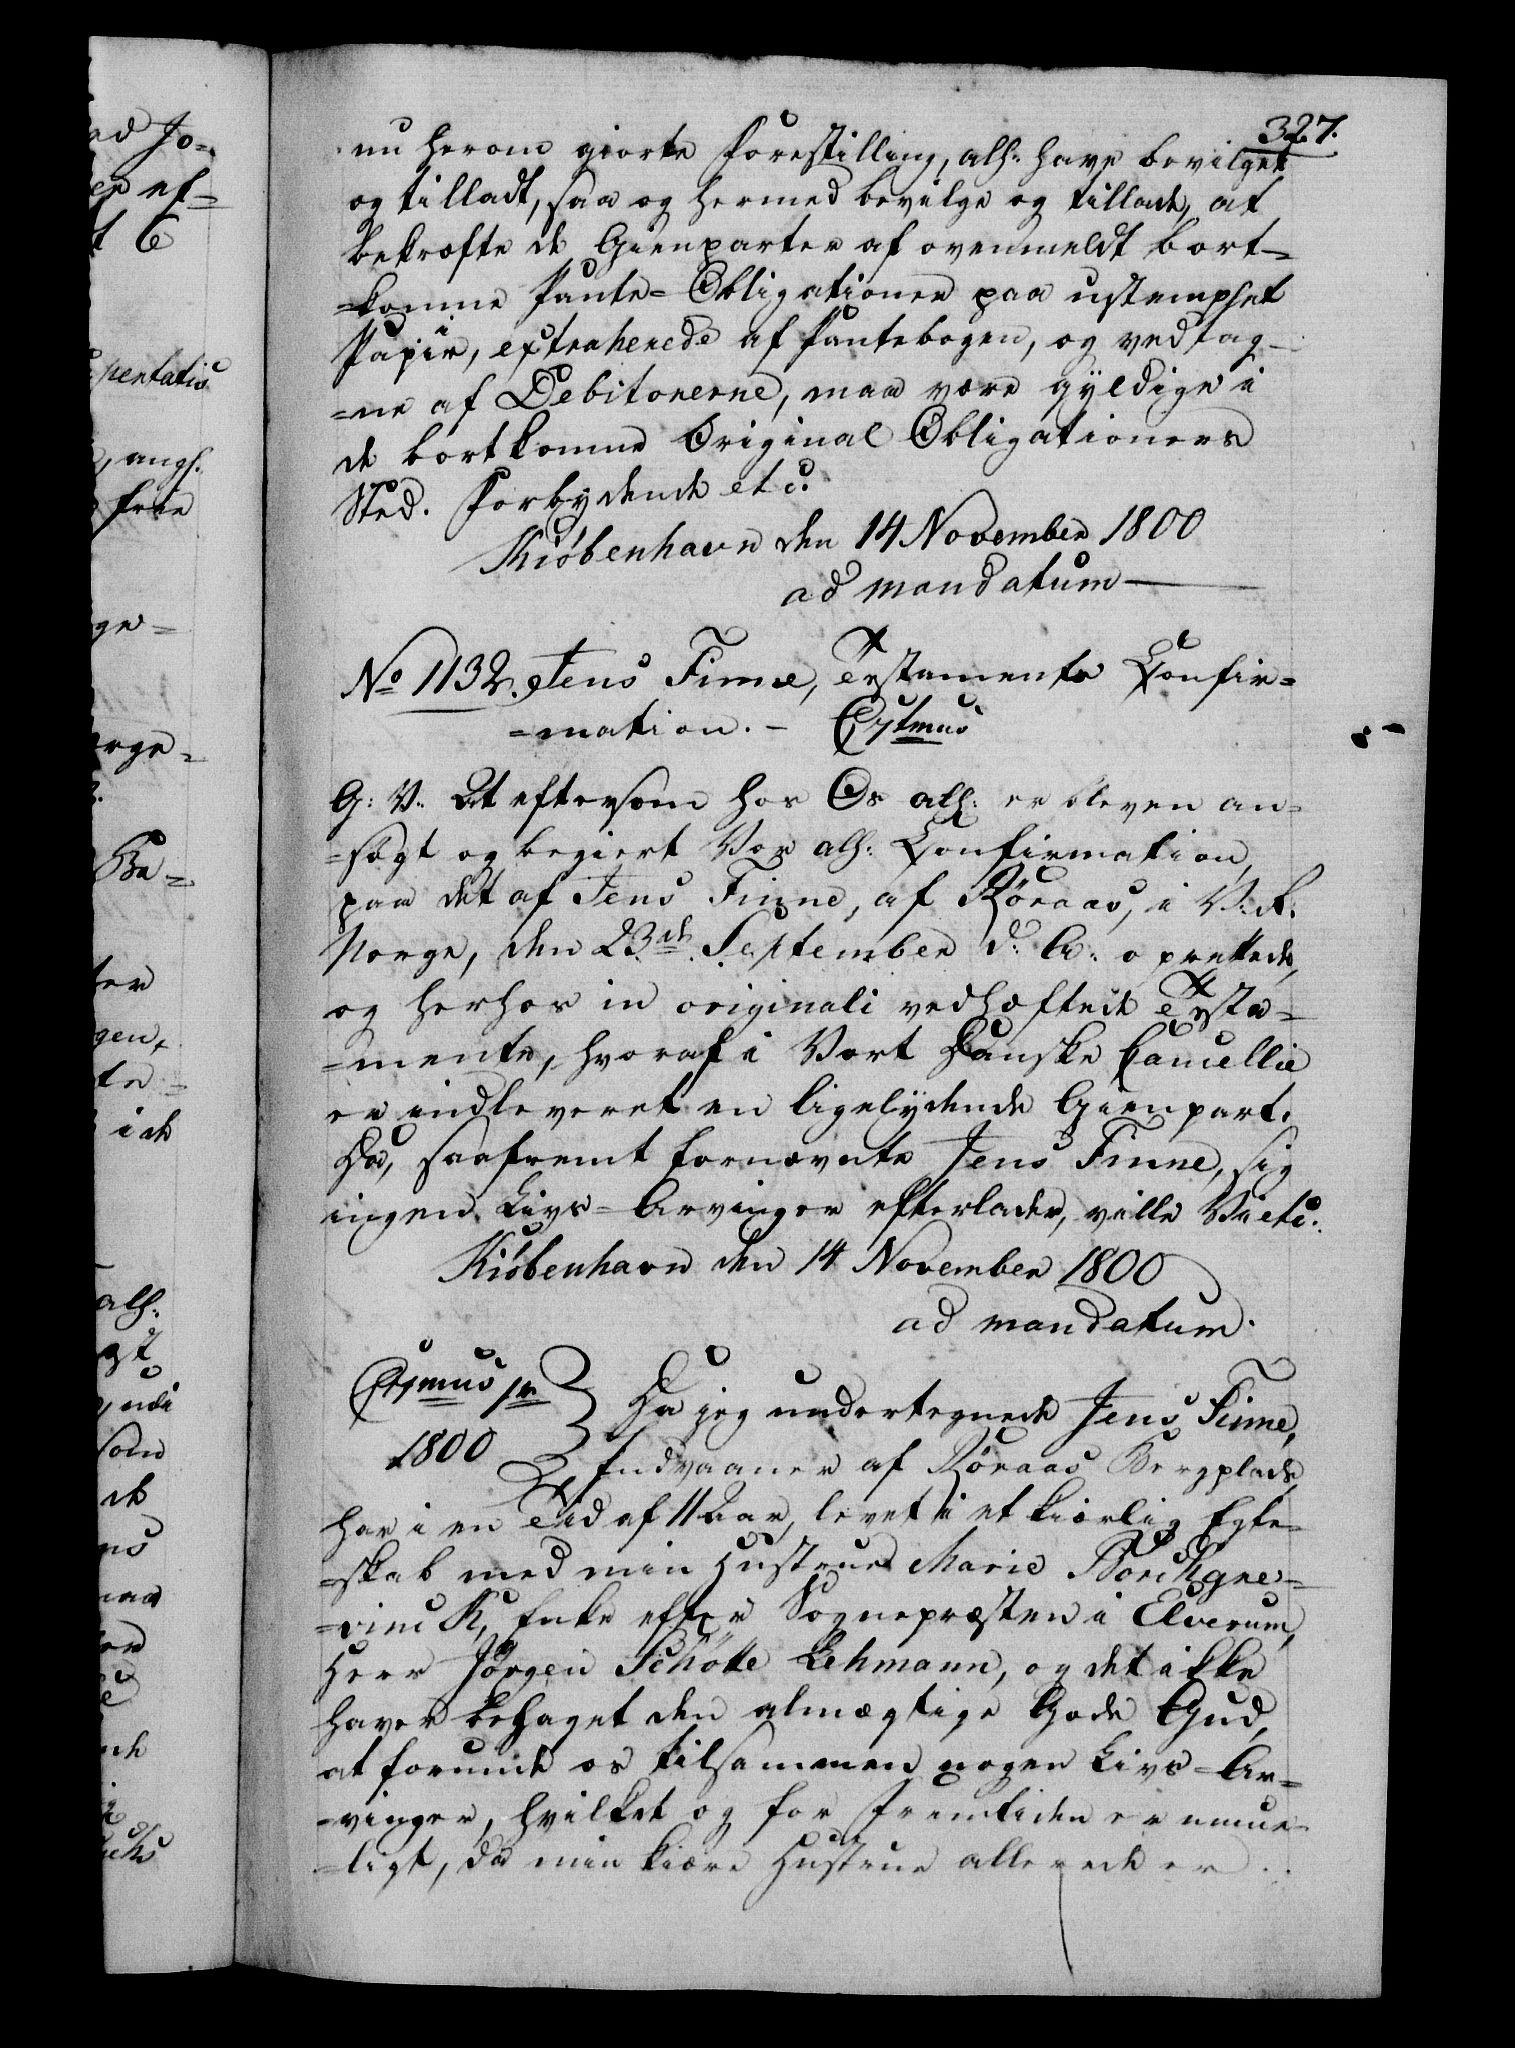 327.
nu herom giorte Forestilling, allh: have bevilget
og tilladt, saa og hermed bevilge og tillade, at
bekræftede Gienparter af ovenmeldt bort-
=komne Pante=Obligationer paa ustemplet
Papiir, extraherede af Pantebogen, og vedtag-
=ne af Debitorerne, maa være gyldige i
de bortkomne Original Obligationers
Sted. Forbydende etc.
Kiøbenhavn den 14 November 1800
ad mandatum
No 1132. Jens Finne, Testaments Confir=
=mation. -
G: V: At eftersom hos Os allh: er bleven an=
=søgt og begiert Vor allh: Confirmation,
paa det af Jens Finne, af Røraas, i V: R:
Norge, den 23de September d: A: oprettede,
og herhos in originali vedhæftede Testa=
=mente, hvoraf i Vort Danske Cancellie
er indleveret en ligelydende Gienpart.
Da, saafremt fornævnte Jens Finne, sig
ingen Livs=Arvinger efterlader, ville Vi etc.
Kiøbenhavn den 14 November 1800
ad mandatum.
1800
Da jeg undertegnede Jens Finne,
Indvaaner af Røraas Bergplads,
har i en Tid af 11 Aar, levet i et kiærlig Egte=
=skab med min Hustrue Marie Borchgre=
=vinck, Enke efter Sognepræsten i Elverum,
Herr Jørgen Schøtte Lehmann, og det ikke
haver behaget den almægtige Gode Gud,
at forunde os tilsammen nogen Livs=Ar=
=vinger, hvilket og for Fremtiden er umue=
=ligt, da min kiære Hustrue allerede er